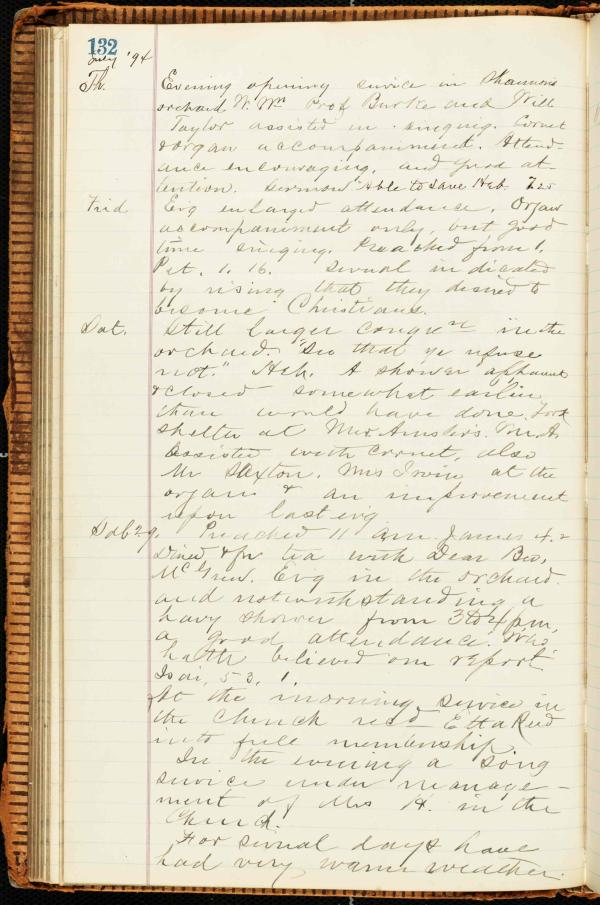 132
July '94
Th. Evening opening service in Shannons
orchard, W. Wn Prof Burke and Will
Taylor assisted in singing. Cornet
& organ accompaniment. Attend-
ance encouraging, and good at-
tention. Sermon "Able to save Heb. 7.25
Frid Evg enlarged attendance. Organ
accompaniment only, but good
time singing. Preached from 1,
Pet. 1. 16. Several indicated
by rising that they desired to
become Christians.
Sat. Still larger congren in the
orchard. "See that ye refuse
not." Heb. A shower apparent
& closed somewhat earlier
than would have done. Took
shelter at Mrs.
assisted with cornet, also
Mr Sexton. Mrs Irvin at the
organ & an improvement
upon last evg
Sab 29. Preached 11 am. James 4.2
Dined & for tea with Dear Bro,
McGrew. Evg in the orchard.
and notwithstanding a
havy shower from 3 to 4 pm,
a good attendance. "Who
hath believed our report"
Isai, 53. 1.
At the morning service in
the Church recd Etta Reed
into full membership.
In the evening a song
service under manage-
ment of Mrs H. in the
Church.
For several days have
had very warm weather.